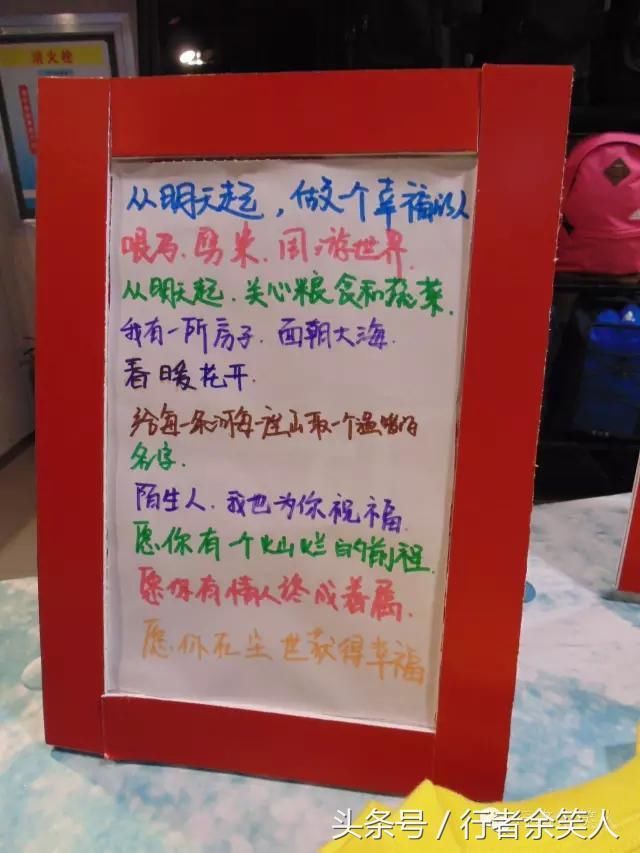 消火栓
从明天起，做个幸福的人
喂马.劈柴.周游世界.
从明天起.关心粮食和蔬菜.
我有一所房子.面朝大海.
春暖花开.
给每一条河每一座山取一个温暖的
名字.
陌生人.我也为你祝福.
愿你有个灿烂的前程.
愿你有情人终成眷属.
愿你在尘世获得幸福
头条号／行者余笑人